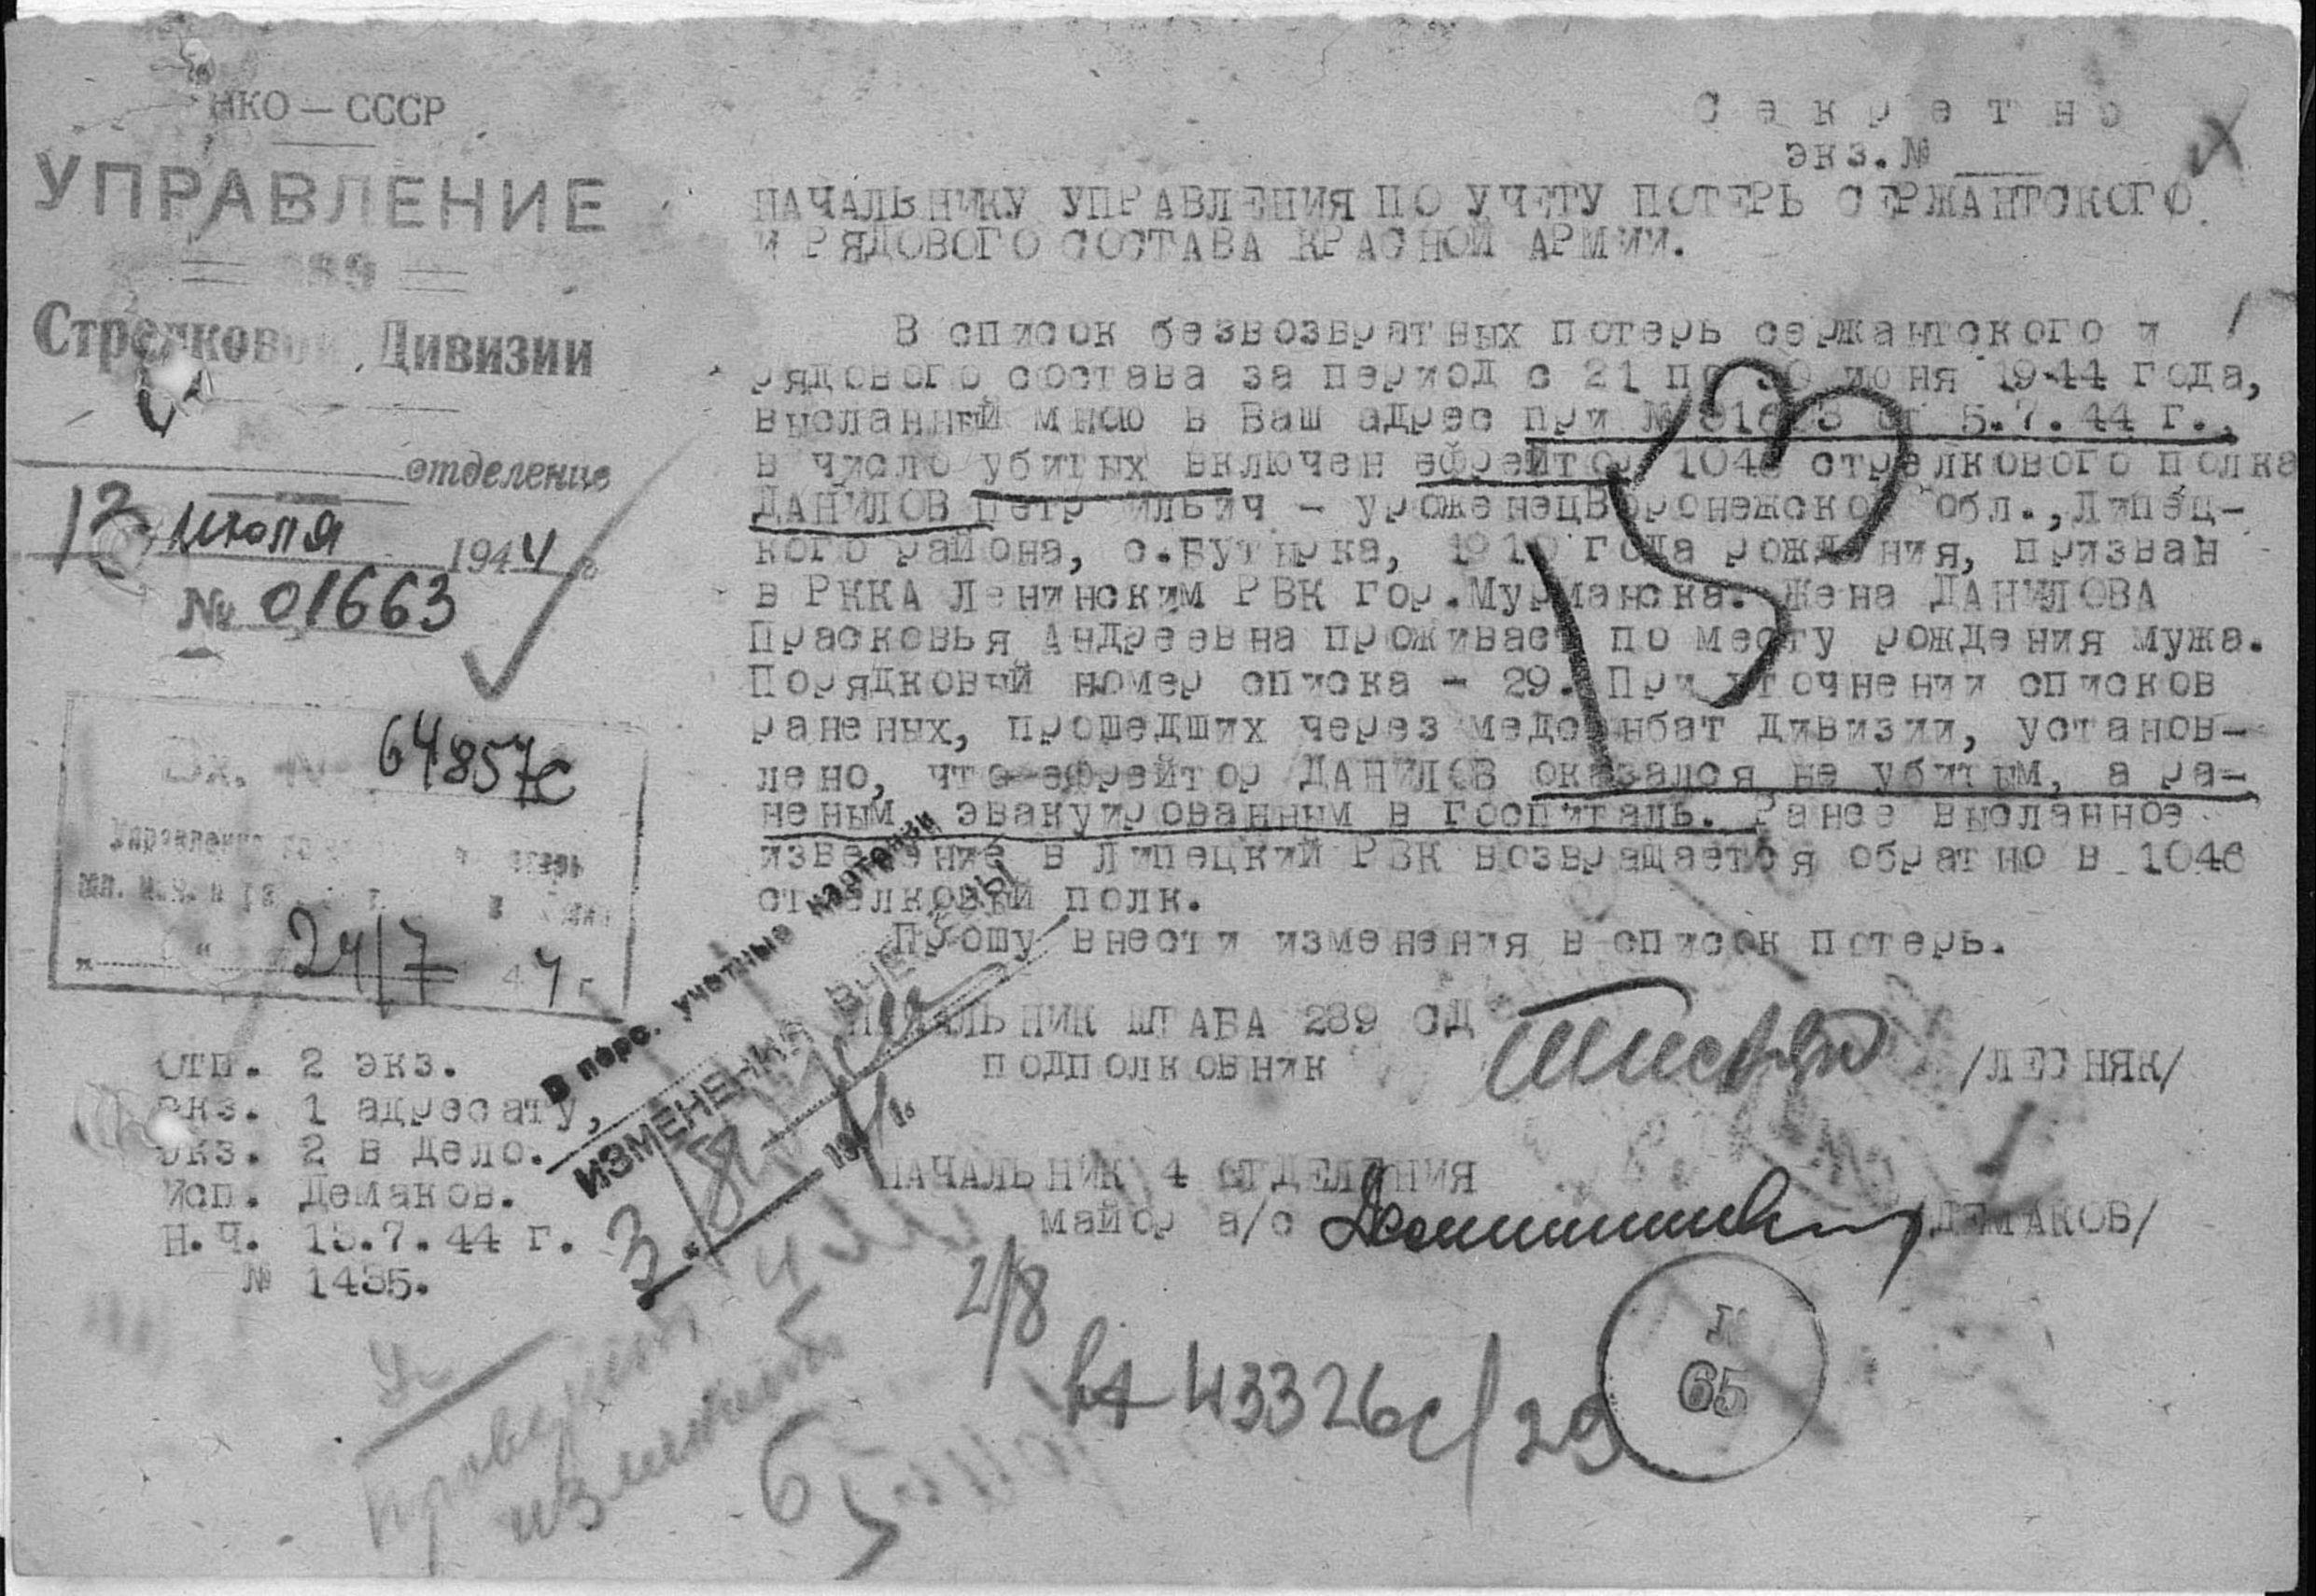 НКО — СССР
УПРАВЛЕНИЕ
289
Стрелковой Дивизии
отделение
13 июля 1944 г.
№ 01663
Вх. № 64857с
Управление
24/7 44 г.
Секретно
экз.№ ___
НАЧАЛЬНИКУ УПРАВЛЕНИЯ ПО УЧЕТУ ПОТЕРЬ СЕРЖАНТСКОГО
И РЯДОВОГО СОСТАВА КРАСНОЙ АРМИИ.
В список безвозвратных потерь сержантского и
рядового состава за период с 21 по 30 июня 1944 года,
высланный мною в Ваш адрес при № от 5.7.44 г.,
в число убитых включен ефрейтор 1046 стрелкового полка
ДАНИЛОВ Петр Ильич - уроженецВоронежской обл.,Липец-
кого района, с.Бутырка, года рождения, призван
в РККА Ленинским РВК гор.Мурманска. Жена ДАНИЛОВА
Прасковья Андреевна проживает по месту рождения мужа.
Порядковый номер списка - 29. При уточнении списков
раненых, прошедших через медсанбат дивизии, установ-
лено, что ефрейтор ДАНИЛОВ оказался не убитым, а ра-
неным эвакуированным в госпиталь. Ранее высланное
извещение в Липецкий РВК возвращается обратно в 1046
стрелковый полк.
Прошу внести изменения в список потерь.
НАЧАЛЬНИК ШТАБА 289 СД
подполковник /ЛЕСНЯК/
НАЧАЛЬНИК 4 ОТДЕЛЕНИЯ
майор а/с /ДЕМАКОВ/
Отп. 2 экз.
экз. 1 адресату,
экз. 2 в дело.
Исп. Демаков.
Н.Ч. 13.7.44 г.
№ 1435.
В перс. учетные карточки
ИЗМЕНЕНИЯ ВНЕСЕНЫ
3. 8 1944 г.
2/8
43326с/29
65